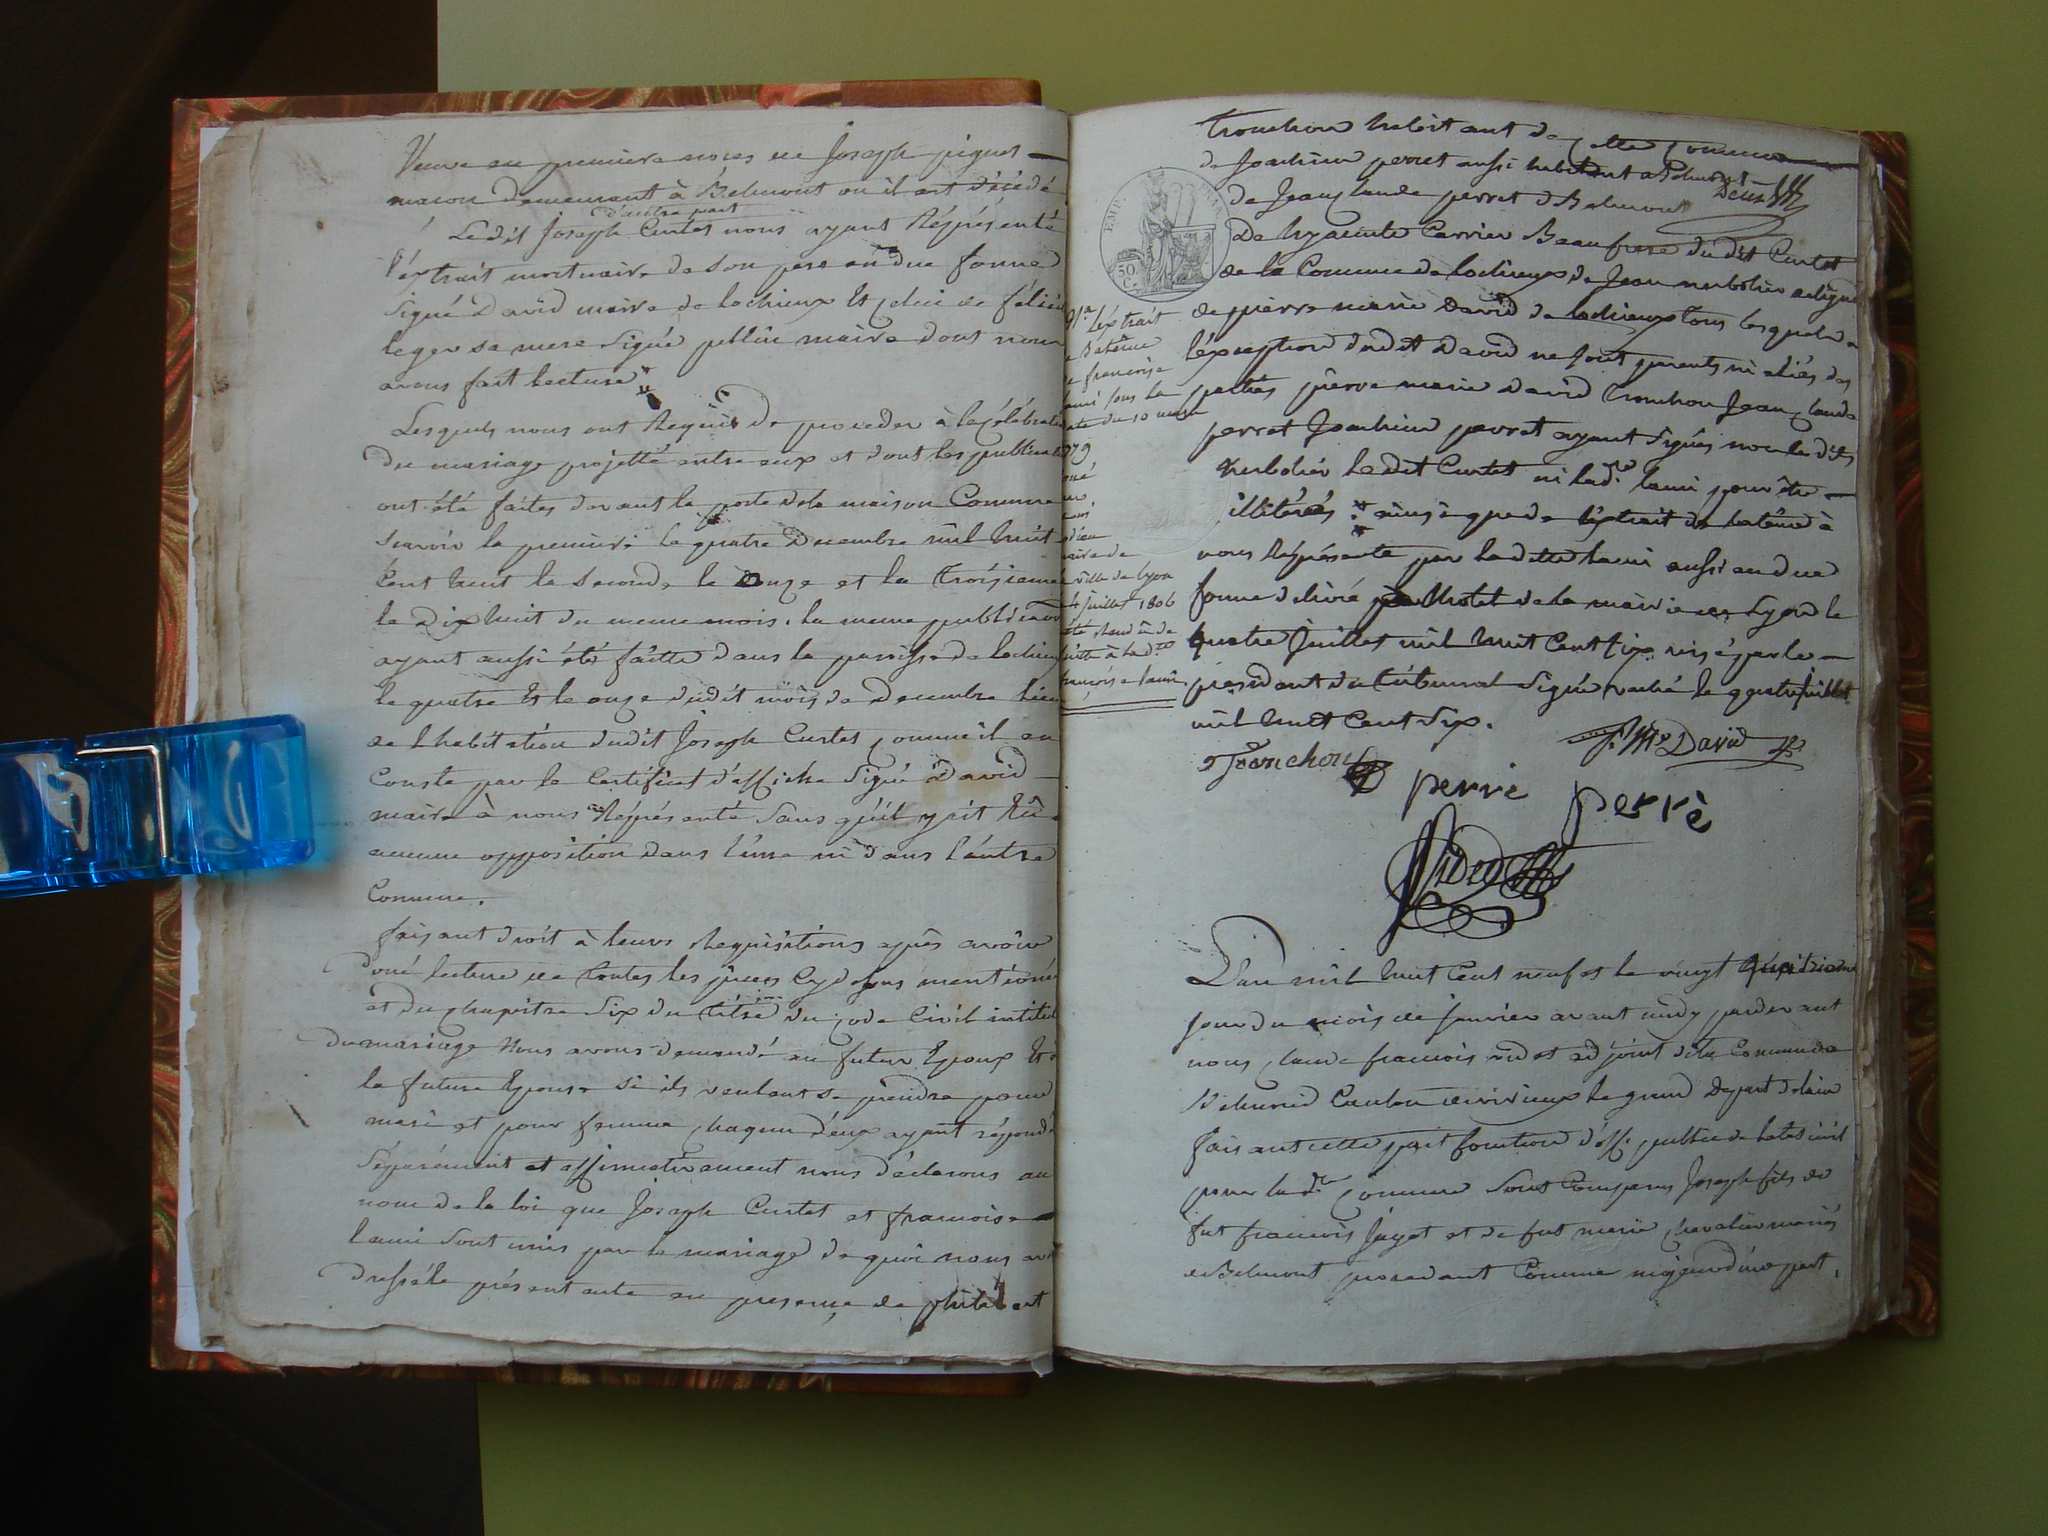 Veuve en premiere noces de Joseph piguet
maçon demeurant à Belmont ou il est décédé
d'autre part
Ledit Joseph Curtet nous ayant Réprésenté
l'éxtrait mortuaire de son pere en due forme
Signé David maire de lochieux Et celui de félici
leger sa mere Signé maire dont nous
avons fait lecture
Lesquels nous ont Requis de proceder à la célébrati
du mariage projetté entre eux et dont les publicati
ont été faites devant la porte de la maison Commune
scavoir la premiere le quatre Decembre mil huit
Cent huit la seconde le onze et la troisieme
le Dix huit du meme mois. la meme publication
ayant aussi été faitte dans la paroisse de lochieu
le quatre Et le onze dudit mois de Decembre lieu
de l'habitation dudit Joseph Curtet comme il en
Conste par le Certificat d'affiche Signé David
maire à nous Réprésenté Sans qu'il y ait Eu
aucune opposition dans l'une ni dans l'autre
Commune.
faisant droit à leurs Requisitions aprés avoir
doné lecture de toutes les pieces Cy dessus mentioné
et du chapitre Six du titre du code Civil intitul
Du mariage Nous avons demandé au futur Epoux Et à
la future Epouse si ils veulent se prendre pour
mari et pour femme chaqun d'eux ayant répondu
Séparément et affirmativement nous déclarons au
nom de la loi que Joseph Curtet et francoise
lami Sont unis par le mariage de quoi nous avo
Dressé le présent acte en presence de philibert
tronchon habitant de cette Commune
de Joachim perret aussi habitant a Belmont
de Jean claude perret d Belmont
De hyacinte Carrier Beaufrere du dit Curtet
de la Commune de lochieux de Jean
de pierre marie David de lochieux tous lesquels a
l'éxception dudit David ne sont parents ni aliés des
parties pierre marie David tronchon Jean claude
perret Joachim perret ayant Signés non les dits
le dit Curtet ni lad. lami pour être
illitérés ainsi que de l'éxtrait de batême à
nous Réprésenté par la ditte lami aussi en due
forme délivré à l'hotel de la mairie de Lyon le
quatre Juillet mil huit Cent six visé par le
president du tribunal Signé le quatre Juillet
mil huit Cent Six.
l'éxtrait
de Batême
de francoise
lami sous la
date du 10
79
maire de
la ville de lyon
4 juillet 1806
ditte à lad.
francoise lami
EMP
50
C.
Tronchon
P. Me David
perre
perrè
Videt
L'an mil huit Cent neuf et le vingt quatrieme
jour du mois de Janvier avant midy pardevant
nous claude francois videt adjoint de la Commune de
Belmont Canton de virieux le grand Depart de lain
faisant cette part fonction d'off. public de l'état civil
pour lad. Commune Sont Comparus Joseph fils de
fut francois Juget et de fut marie chevalier mariés
de Belmont procedant Comme majeur d'une part,